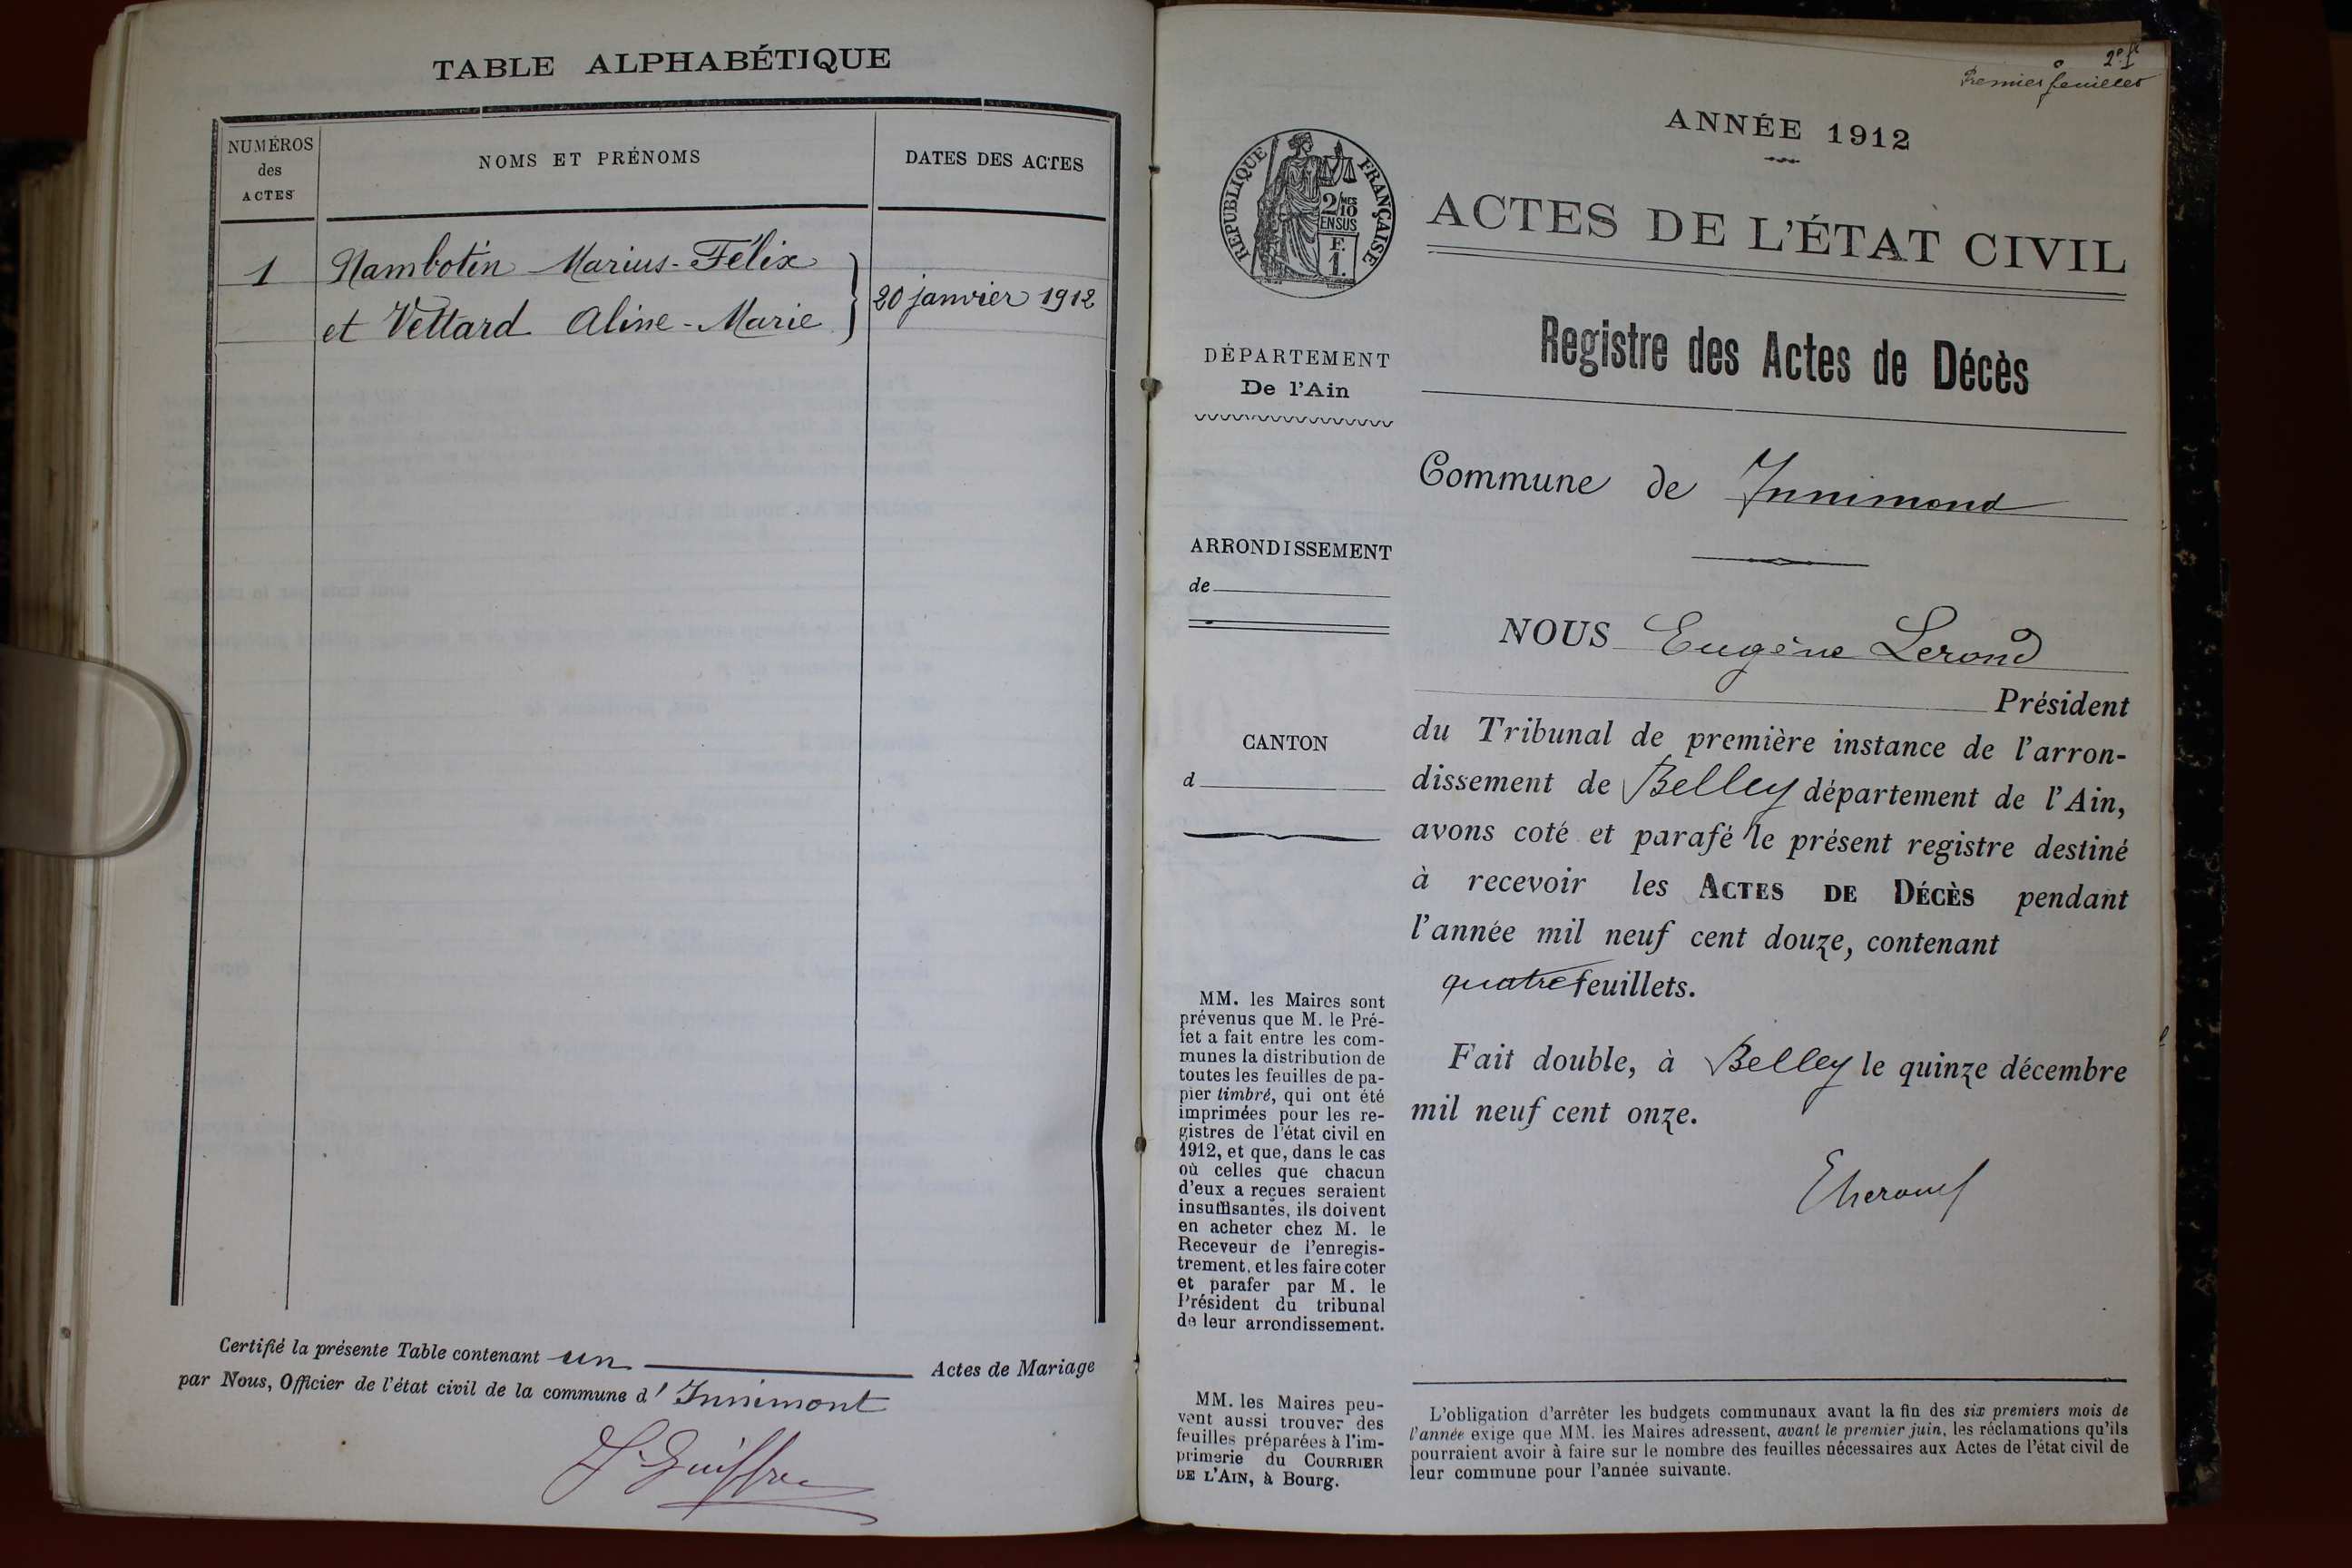 TABLE ALPHABÉTIQUE
NUMÉROS
des
ACTES
NOMS ET PRÉNOMS
DATES DES ACTES
1
Nambotin Marius-Félix
et Vettard Aline-Marie
20 janvier 1912
Certifié la présente Table contenant un Actes de Mariage
par Nous, Officier de l'état civil de la commune d' Innimont
Premier feuillet
ANNÉE 1912
RÉPUBLIQUE FRANÇAISE
2/10 MES
EN SUS
F.
1.
ACTES DE L'ÉTAT CIVIL
Registre des Actes de Décès
DÉPARTEMENT
De l'Ain
Commune de Innimond
ARRONDISSEMENT
de
NOUS Eugène Lerond
Président
CANTON
d
du Tribunal de première instance de l'arron-
dissement de Belley département de l'Ain,
avons coté et parafé le présent registre destiné
à recevoir les ACTES DE DÉCÈS pendant
l'année mil neuf cent douze, contenant
quatre feuillets.
Fait double, à Belley le quinze décembre
mil neuf cent onze.
MM. les Maires sont
prévenus que M. le Pré-
fet a fait entre les com-
munes la distribution de
toutes les feuilles de pa-
pier timbré, qui ont été
imprimées pour les re-
gistres de l'état civil en
1912, et que, dans le cas
où celles que chacun
d'eux a reçues seraient
insuffisantes, ils doivent
en acheter chez M. le
Receveur de l'enregis-
trement, et les faire coter
et parafer par M. le
Président du tribunal
de leur arrondissement.
MM. les Maires peu-
vent aussi trouver des
feuilles préparées à l'im-
primerie du COURRIER
DE L'AIN, à Bourg.
L'obligation d'arrêter les budgets communaux avant la fin des six premiers mois de
l'année exige que MM. les Maires adressent, avant le premier juin, les réclamations qu'ils
pourraient avoir à faire sur le nombre des feuilles nécessaires aux Actes de l'état civil de
leur commune pour l'année suivante.